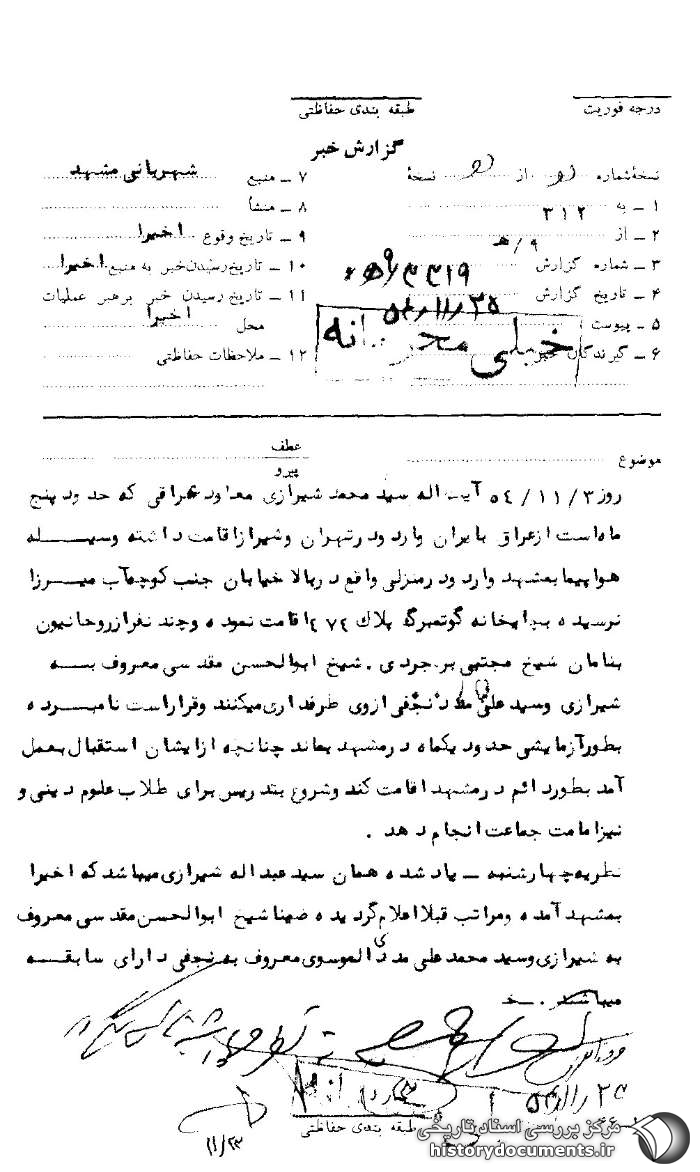 درجه فوریت
طبقه بندی حفاظتی
گزارش خبر
نسخهٔ شماره از نسخهٔ
۱ ـ به ۳۱۲
۲ ـ از ۹/هـ
۳ ـ شماره گزارش
۴ ـ تاریخ گزارش
۵ ـ پیوست
۶ ـ گیرندگان خبر
۷ ـ منبع شهربانی مشهد
۸ ـ منشأ
۹ ـ تاریخ وقوع اخیرا
۱۰ ـ تاریخ رسیدن خبر به منبع اخیرا
۱۱ ـ تاریخ رسیدن خبر برهبر عملیات
محل اخیرا
۱۲ ـ ملاحظات حفاظتی
خیلی محرمانه
موضوع
عطف
پیرو
روز ۳ /۱۱ / ۵۴ آیت اله سید محمد شیرازی معاود عراقی که حدود پنج
ماه است از عراق بایران وارد و در تهران و شیراز اقامت داشته وسیله
هواپیما بمشهد وارد و در منزلی واقع در بالا خیابان جنب کوچه آب میرزا
نرسیده بچاپخانه گوتمبرگ پلاک ۴۷۴ اقامت نموده و چند نفر از روحانیون
بنامان شیخ مجتبی برجردی . شیخ ابوالحسن مقدسی معروف به
شیرازی وسید علی نجفی ازوی طرفداری میکنند وقرار است نامبرده
بطور آزمایشی حدود یکماه در مشهد بماند چنانچه از ایشان استقبال بعمل
آمد بطور دائم در مشهد اقامت کند وشروع بتدریس برای طلاب علوم دینی و
نیز امامت جماعت انجام دهد .
نظریه چهارشنبه ـ یاد شده همان سید عبداله شیرازی میباشد که اخیرا
بمشهد آمده ومراتب قبلا اعلام گردیده ضمنا شیخ ابوالحسن مقدسی معروف
به شیرازی وسید محمد علی مددی الموسوی معروف به نجفی دارای سابقه
میباشند . خ
۱۱/۲۳
طبقه بندی حفاظتی
مرکز بررسی اسناد تاریخی
historydocuments.ir